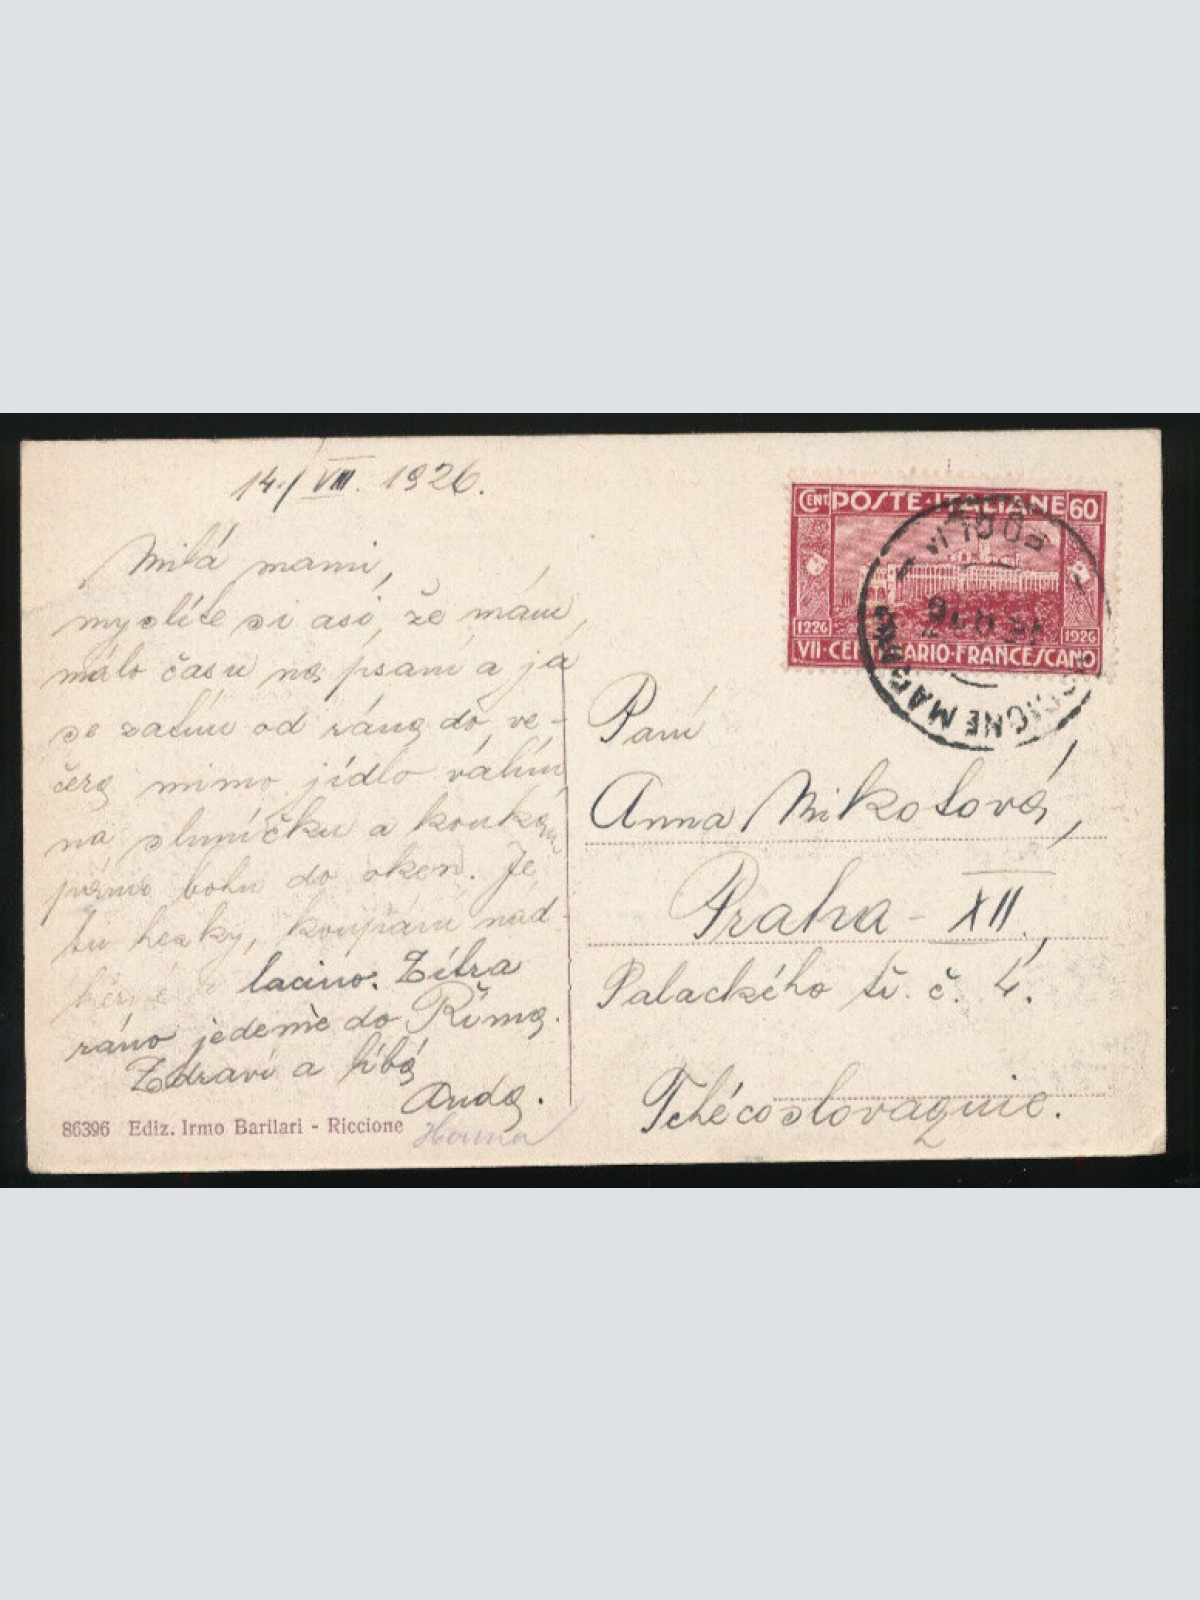 14./VIII. 1926.
Milá mami,
myslíte si asi, že mám
málo času na psaní a já
se zatím od rána do ve-
čera mimo jídlo válím
na sluníčku a koukám
přímo bohu do oken. Je
tu hezky, koupání nád-
herné a lacino. Zítra
ráno jedeme do Říma.
Zdraví a líbá
Anda.
86396 Ediz. Irmo Barilari - Riccione
CENT POSTE·ITALIANE 60
1226 1926
VII·CENTENARIO·FRANCESCANO
RICCIONE MARINA
FORLI
Paní
Anna Mikolová,
Praha - XII.,
Palackého tř. č. 4.
Tchécoslovaquie.